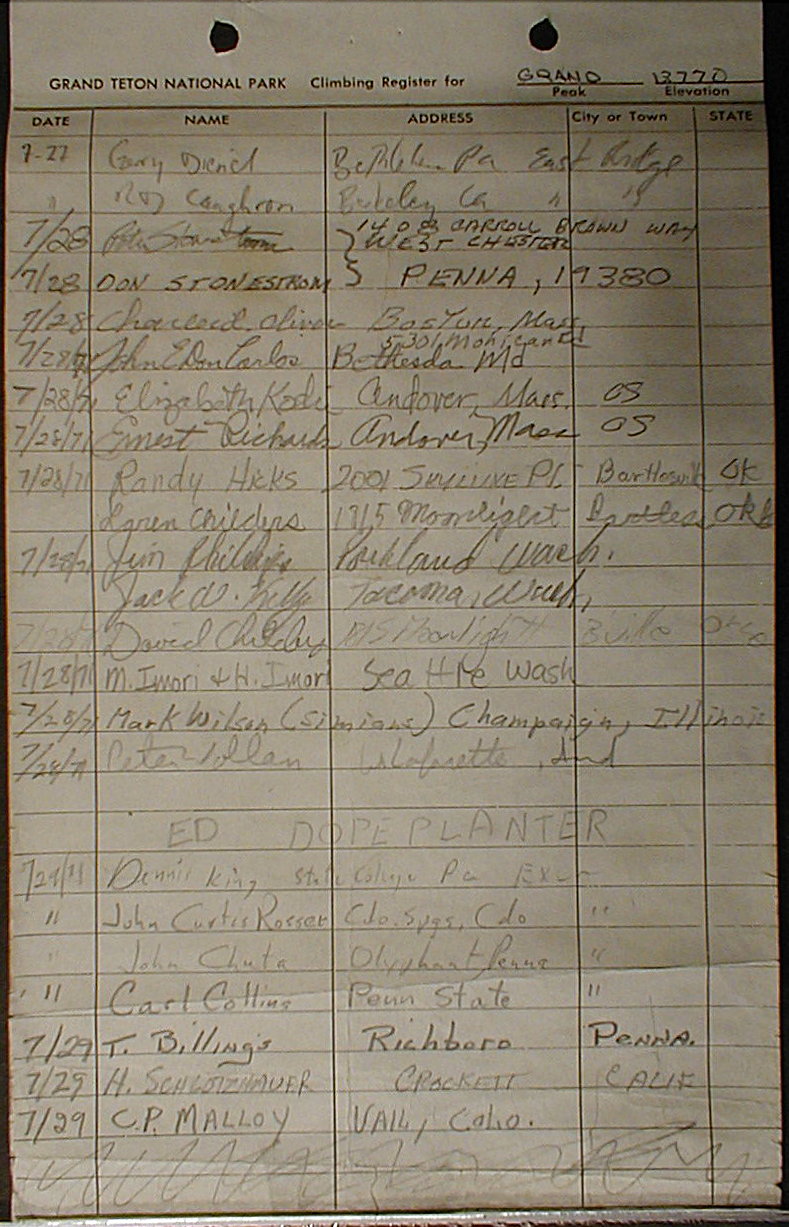 GRAND TETON NATIONAL PARK Climbing Register for GRAND 13770
Peak Elevation
DATE NAME ADDRESS City or Town STATE
7-27 Gary Bethlehem Pa East Ridge
" Roy Coughron Berkeley Ca " "
7/28 1408 CARROLL BROWN WAY
WEST CHESTER
7/28 DON STONESTROM PENNA, 19380
7/28 Oliver Boston, Mass,
5301 Mohican Rd
7/28/71 John E Don Carlos Bethesda Md
7/28/71 Elizabeth Andover, Mass. OS
7/28/71 Ernest Richards Andover, Mass OS
7/28/71 Randy Hicks 2001 SKYLINE Pl. OK
Loren Childers 1315 Moonlight
7/28/71 Jim Phillips Parkland Wash.
Jack W. Kelly Tacoma, Wash,
7/28/71 David Childers Moonlight Bville
7/28/71 M. Imori & H. Imori Seattle Wash
7/28/71 Mark Wilson (Simians) Champaign, Illinois
7/28/71 Peter W Lafayette, Ind
ED DOPEPLANTER
7/29/71 Dennis King State College Pa
" John Curtis Rosser Clo. Spgs, Clo "
" John Chuta Olyphant, Penna "
" Carl Colling Penn State "
7/29 T. Billings Richboro PENNA.
7/29 H. SCHLOTZHAUER CROCKETT CALIF
7/29 C.P. MALLOY VAIL, Colo.